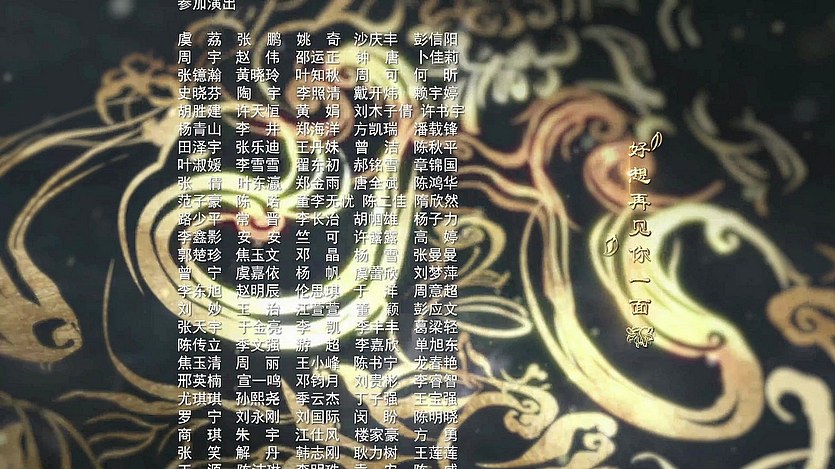 参加演出
虞 荔 张 鹏 姚 奇 沙庆丰 彭信阳
周 宇 赵 伟 邵运正 钟 唐 卜佳莉
张镱瀚 黄晓玲 叶知秋 周 可 何 昕
史晓芬 陶 宇 李照清 戴开炜 赖宇婷
胡胜建 许天恒 黄 娟 刘木子倩 许书宇
杨青山 李 井 郑海洋 方凯瑞 潘载锋
田泽宇 张乐迪 王丹妹 曾 洁 陈秋平
叶淑媛 李雪雪 翟东初 郝铭雪 章锦国
张 倩 叶东瀛 郑金雨 唐全斌 陈鸿华
范子豪 陈 喆 董李无忧 陈二佳 隋欣然
路少平 常 晋 李长治 胡帼雄 杨子力
李鑫影 安 安 竺 可 许露露 高 婷
郭楚珍 焦玉文 邓 晶 杨 雪 张曼曼
曾 宁 虞嘉依 杨 帆 虞蕾欣 刘梦萍
李东旭 赵明辰 伦思琪 于 洋 周意超
刘 妙 王 冶 汪萱萱 董 颖 彭应文
张天宇 于金亮 李 凯 李丰丰 葛梁轻
陈传立 李文强 游 超 李嘉欣 单旭东
焦玉清 周 丽 王小峰 陈书宁 龙春艳
邢英楠 宣一鸣 邓钧月 刘贵彬 李睿智
尤琪琪 孙熙尧 季云杰 丁子强 王宝强
罗 宁 刘永刚 刘国际 闵 盼 陈明晓
商 琪 朱 宇 江仕风 楼家豪 方 勇
张 笑 解 丹 韩志刚 耿力树 王莲莲
好想再见你一面